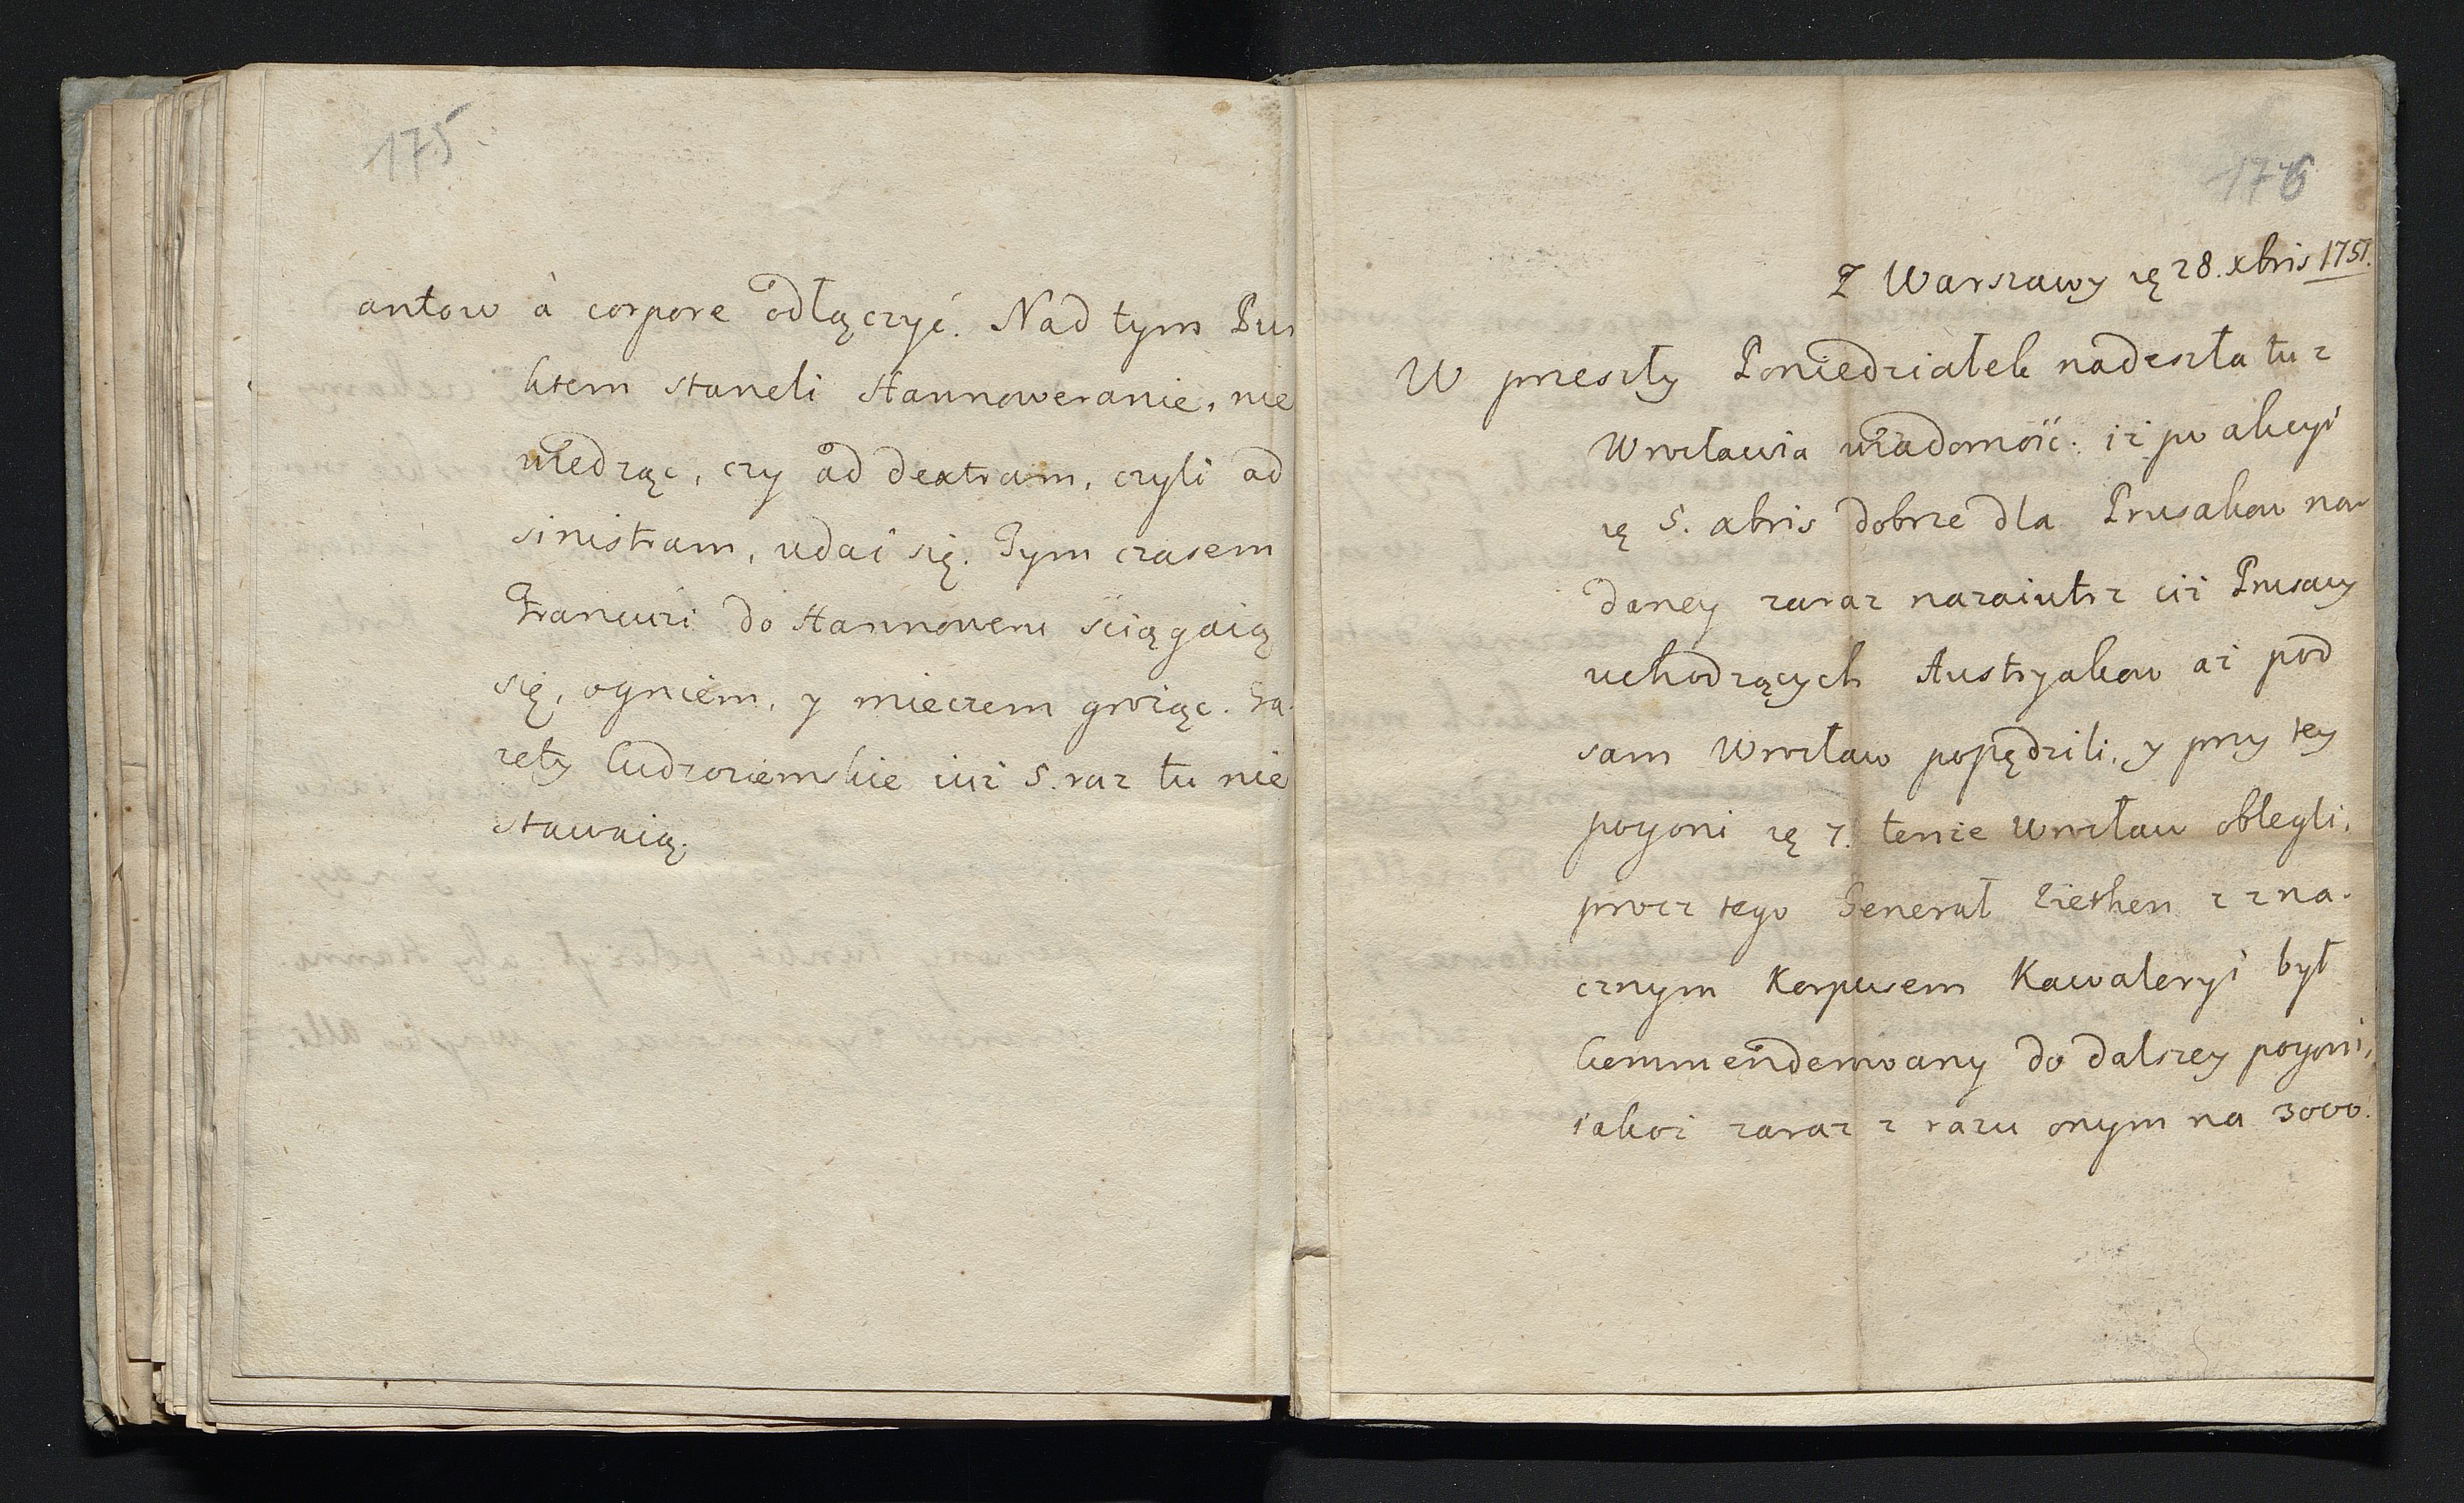 175.
antow à corpore odłączyć. Nad tym Pun
ktem staneli Hannoweranie, nie
wiedząc, czy ad dextram, czyli ad
sinistram, udać się. Tym czasem
Francuzi do Hannoweru sciągaią
się, ogniem, y mieczem grożąc. Ga.
zety Cudzoziemskie iuż 5. raz tu nie
stawaią.
176
Z Warszawy 28. xbris 1757.
W przeszły Poniedziałek nadeszła tu z
Wrocławia wiadomość: iż po akcyi
5. xbris dobrze dla Prusakow na
daney zaraz nazaiutrz ciż Prusacy
uchodzących Austryakow aż pod
sam Wrocław popędzili, y przy tey
pogoni 7. tenże Wrocław oblegli,
procz tego Generał Ziethen z zna.
cznym Korpusem Kawaleryi był
kommenderowany do dalszey pogoni,
iakoż zaraz z razu onym na 3000.